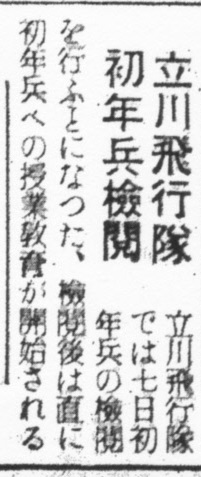 立川飛行隊
初年兵檢閲
立川飛行隊
では七日初
年兵の檢閲
を行ふとになつた、檢閲後は直に
初年兵への授業敎育が開始される